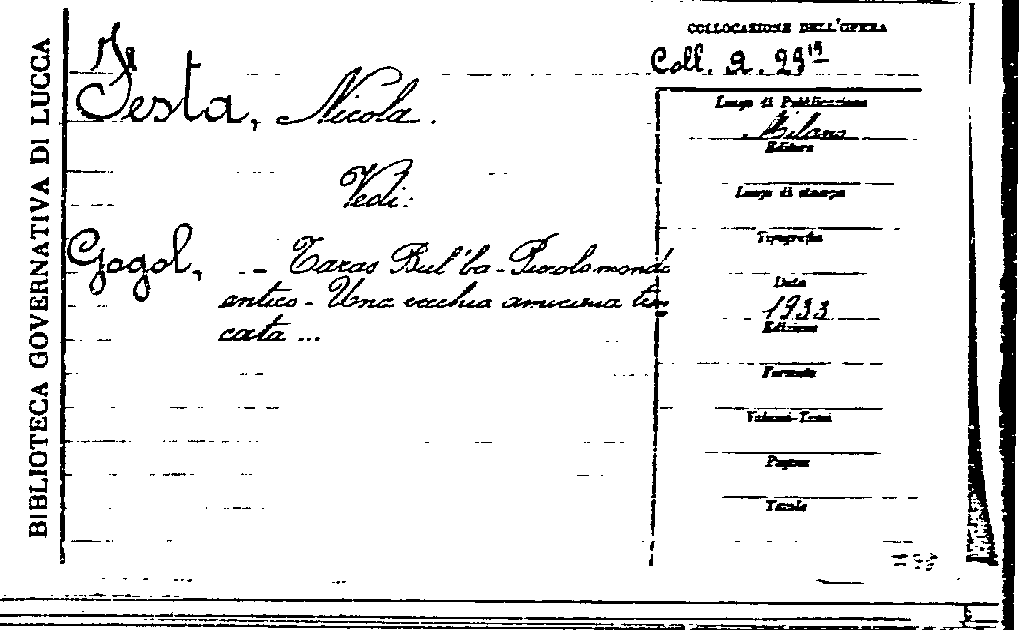 BIBLIOTECA GOVERNATIVA DI LUCCA
COLLOCAZIONE DELL'OPERA
Coll. A. 23
Testa, Nicola.
Vedi:
Gogol, - Taras Bul'ba - Piccolo mondo
antico - Una vecchia amicizia tron
cata ...
Luogo di Pubblicazione
Milano
Editore
Luogo di stampa
Tipografia
Data
1933
Edizione
Formato
Volumi-Tomi
Pagine
Tavole